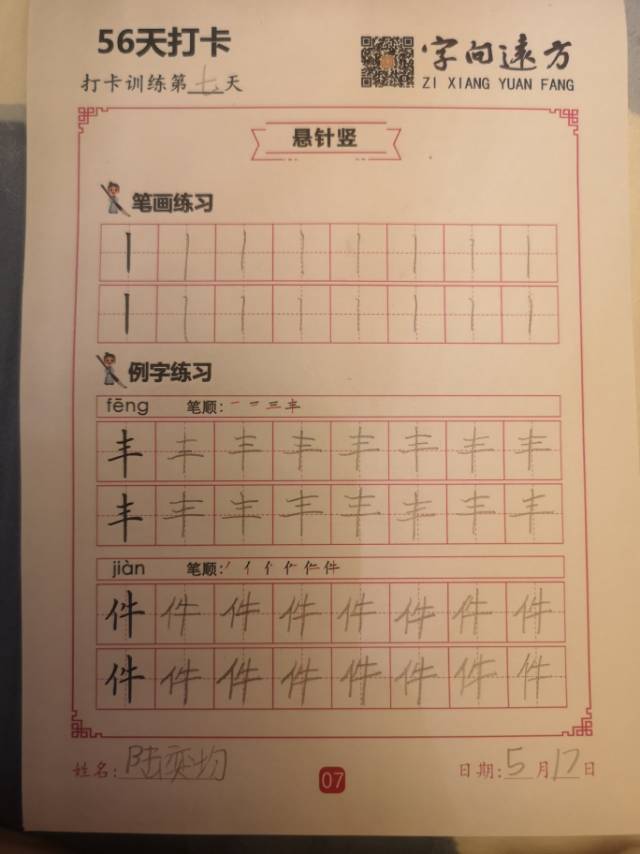 56天打卡
字向远方
打卡训练第七天
ZI XIANG YUAN FANG
悬针竖
笔画练习
丨 丨 丨 丨 丨 丨 丨 丨
丨 丨 丨 丨 丨 丨 丨 丨
例字练习
fēng 笔顺: 一 二 三 丰
丰 丰 丰 丰 丰 丰 丰 丰
丰 丰 丰 丰 丰 丰 丰 丰
jiàn 笔顺: 丿 亻 亻 仁 件
件 件 件 件 件 件 件 件
件 件 件 件 件 件 件 件
姓名: 陆奕均
07
日期: 5 月 17 日